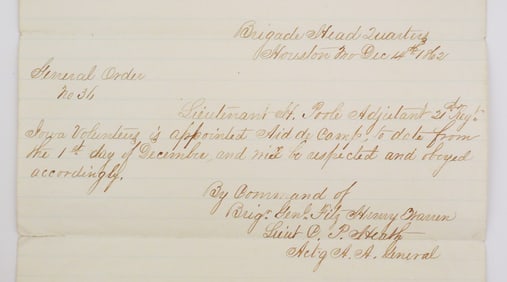 Brigade Head Quarters
Houston Mo Dec 4th 1862
General Order
No 36
Lieutenant H. Poole Adjutant 21st Regt
Iowa Volunteers is appointed Aid de Camp. to date from
the 1st day of December, and will be respected and obeyed
accordingly.
By Command of
Brigr Genl Fitz Henry Warren
Lieut C. P. Heath
Actg A. A. General